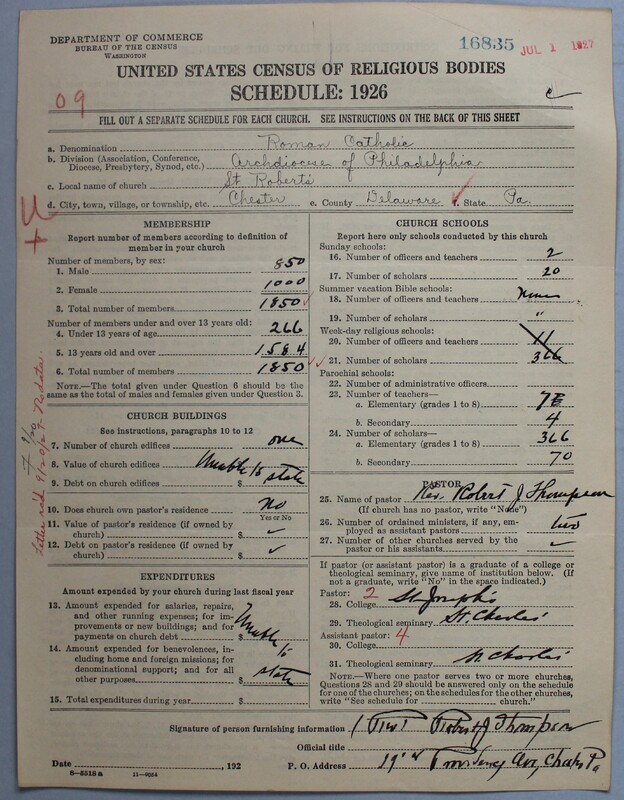 DEPARTMENT OF COMMERCE
BUREAU OF THE CENSUS
WASHINGTON
16835 JUL 1 1927
UNITED STATES CENSUS OF RELIGIOUS BODIES
SCHEDULE: 1926
09
FILL OUT A SEPARATE SCHEDULE FOR EACH CHURCH. SEE INSTRUCTIONS ON THE BACK OF THIS SHEET
a. Denomination Roman Catholic
b. Division (Association, Conference, Diocese, Presbytery, Synod, etc.) Archdiocese of Philadelphia
c. Local name of church St Robert's
d. City, town, village, or township, etc. Chester e. County Delaware f. State Pa.
MEMBERSHIP
Report number of members according to definition of
member in your church
Number of members, by sex:
1. Male 850
2. Female 1000
3. Total number of members 1850
Number of members under and over 13 years old:
4. Under 13 years of age 266
5. 13 years old and over 1584
6. Total number of members 1850
NOTE.—The total given under Question 6 should be
the same as the total of males and females given under Question 3.
CHURCH BUILDINGS
See instructions, paragraphs 10 to 12
7. Number of church edifices one
8. Value of church edifices Unable to
9. Debt on church edifices $ state
10. Does church own pastor's residence? No
Yes or No
11. Value of pastor's residence (if owned by
church) $
12. Debt on pastor's residence (if owned by
church) $
EXPENDITURES
Amount expended by church during last fiscal year
13. Amount expended for salaries, repairs,
and other running expenses; for im-
provements or new buildings; and for
payments on church debt $ Unable to
14. Amount expended for benevolences,
including home and foreign missions; for
denominational support; and for all
other purposes $ state
15. Total expenditures during year $
CHURCH SCHOOLS
Report here only schools conducted by this church
Sunday schools:
16. Number of officers and teachers 2
17. Number of scholars 20
Summer vacation Bible schools:
18. Number of officers and teachers None
19. Number of scholars "
Week-day religious schools:
20. Number of officers and teachers 11
21. Number of scholars 366
Parochial schools:
22. Number of administrative officers
23. Number of teachers—
a. Elementary (grades 1 to 8) 7
b. Secondary 4
24. Number of scholars—
a. Elementary (grades 1 to 8) 366
b. Secondary 70
PASTOR
25. Name of pastor Rev. Robert J Thompson
(If church has no pastor, write "None")
26. Number of ordained ministers, if any, em-
ployed as assistant pastors two
27. Number of other churches served by the
pastor or his assistants
If pastor (or assistant pastor) is a graduate of a college or
theological seminary, give name of institution below. (If
not a graduate, write "No" in the space indicated.)
Pastor: 2
28. College St Joseph's
29. Theological seminary St. Charles'
Assistant pastor: 4
30. College
31. Theological seminary St Charles'
NOTE.—Where one pastor serves two or more churches,
Questions 28 and 29 should be answered only on the schedule
for one of the churches; on the schedules for the other churches,
write "See schedule for church."
Signature of person furnishing information Robert J Thompson
Official title
Date , 192 P. O. Address 19th & Providence Ave, Chester Pa
8—5518a 11—9054